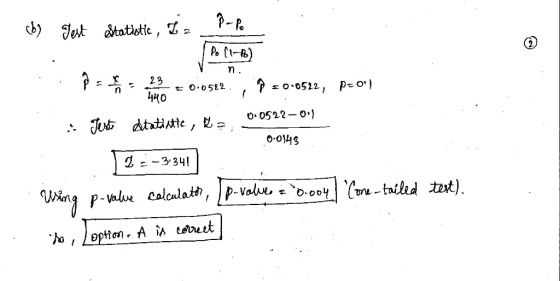 (b) Test Statistic, Z = p̂ - P₀ / √(P₀ (1-P₀) / n)
②
p̂ = x/n = 23/440 = 0.0522 , p̂ = 0.0522, p = 0.1
∴ Test Statistic, Z = 0.0522 - 0.1 / 0.0143
Z = -3.341
Using p-value calculator, p-value = 0.004 (one-tailed test).
So, option. A is correct